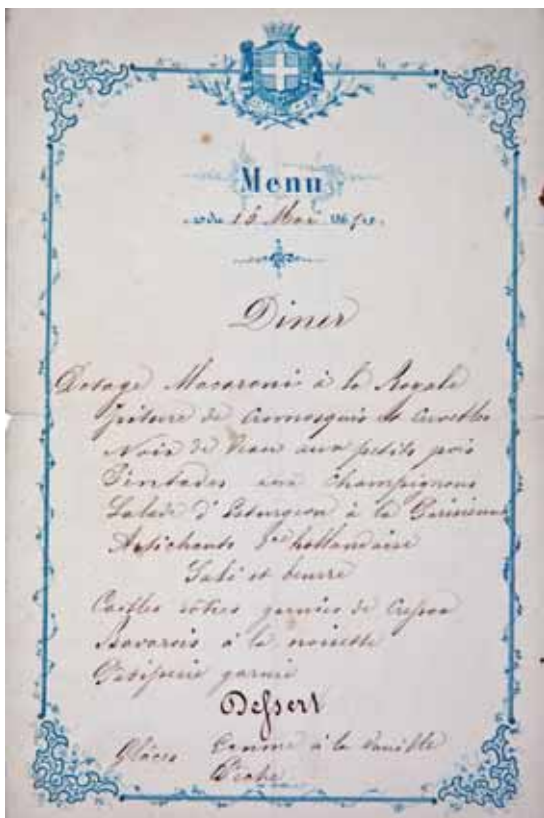 Menu
du 16 Mai 18
Diner
Potage Macaroni à la Royale
friture de Cromosquis et Cervelles
Noix de Veau aux petits pois
Pintades aux Champignons
Salade d'Esturgeon à la Parisienne
Artichauts Sce hollandaise
Salé et beurre
Cailles rôties garnies de Cresson
Bavarois à la noisette
Patisserie garnie
Dessert
Glaces Crème à la Vanille